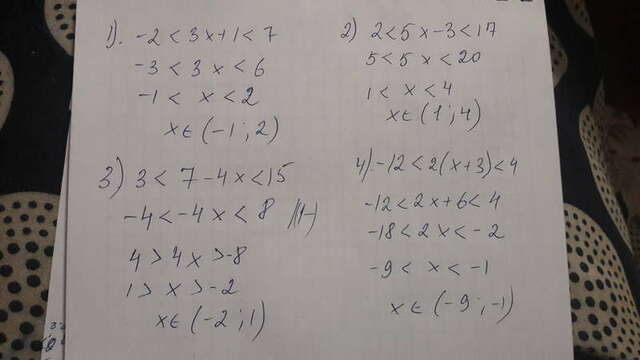 1). -2 < 3x+1 < 7
-3 < 3x < 6
-1 < x < 2
x∈ (-1 ; 2)
2) 2 < 5x-3 < 17
5 < 5x < 20
1 < x < 4
x∈ (1 ; 4)
3) 3 < 7-4x < 15
-4 < -4x < 8
4 > 4x > -8
1 > x > -2
x∈ (-2 ; 1)
4). -12 < 2(x+3) < 4
-12 < 2x+6 < 4
-18 < 2x < -2
-9 < x < -1
x∈ (-9 ; -1)